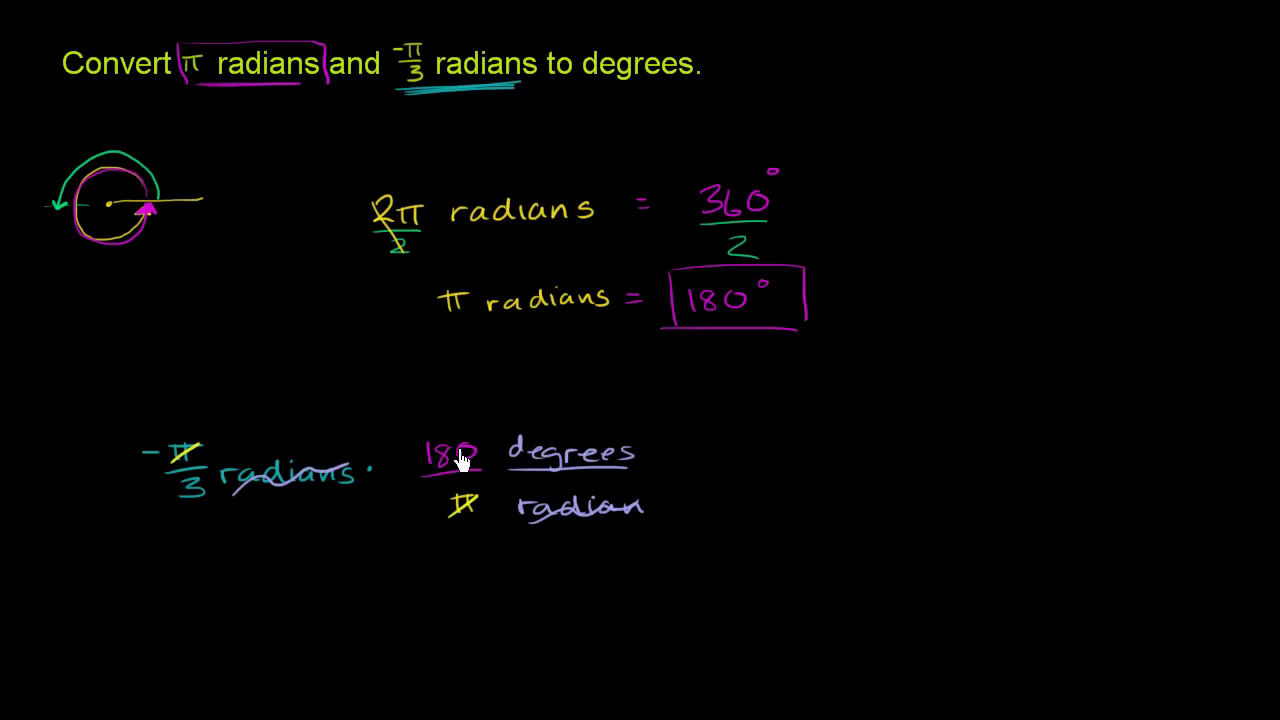 Convert π radians and -π/3 radians to degrees.
2π/2 radians = 360°/2
π radians = 180°
-π/3 radians · 180/π degrees/radian